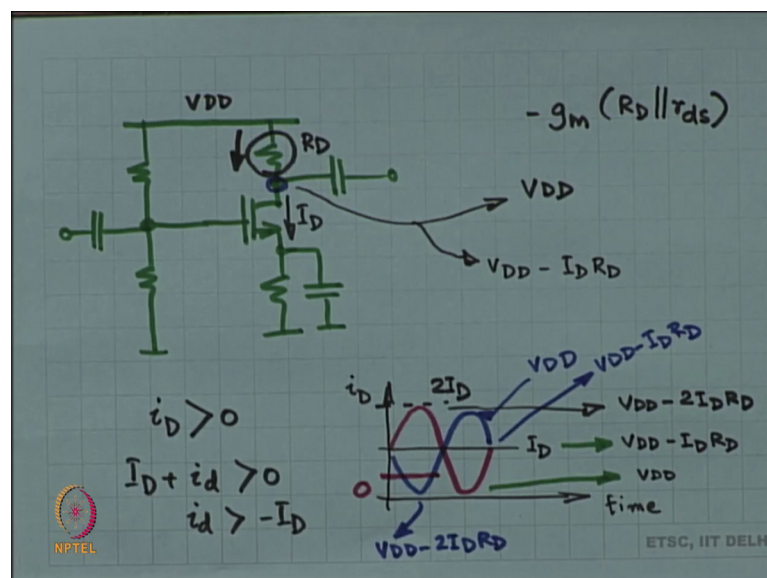 VDD
- gm (RD || rds)
RD
ID
VDD
VDD - ID RD
iD > 0
ID + id > 0
id > - ID
iD
2ID
VDD
VDD - ID RD
VDD - 2 ID RD
ID
VDD - ID RD
0
VDD
time
VDD - 2 ID RD
NPTEL
ETSC, IIT DELH